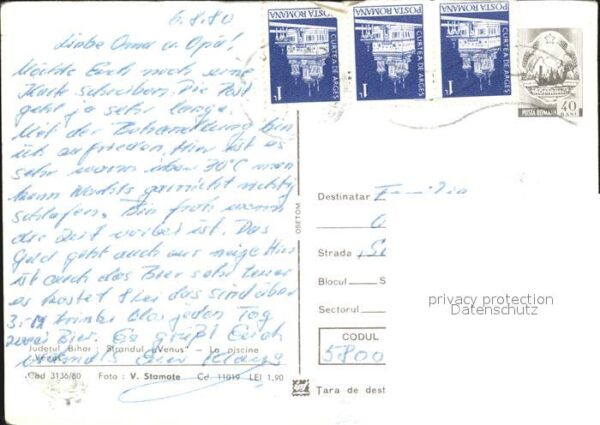 6.8.80
Liebe Oma u. Opa!
Möchte Euch noch eine
Karte schreiben. Die Post
geht ja sehr lange.
Mit der Behandlung bin
ich zufrieden. Hier ist es
sehr warm über 30°C man
kann Nachts garnicht richtig
schlafen. Bin froh wenn
die Zeit vorbei ist. Das
Geld geht auch zur neige Hier
ist auch das Bier sehr teuer
es kostet 8 Lei das sind über
3.- M trinke blos jeden Tag
zwei Bier. Es grüßt Euch
nochmals Euer Klaus
Județul Bihor : Strandul „Venus" — La piscine
„Venus"
Cod 3136/80 Foto : V. Stamate Cd. 11019 LEI 1,90
POSTA ROMANA
CURTEA DE ARGES
1L
POSTA ROMANA
CURTEA DE ARGES
1L
POSTA ROMANA
CURTEA DE ARGES
1L
POSTA ROMANA
40
BANI
OSETCM
Destinatar
Strada
Blocul
Sectorul
CODUL
5800
Țara de dest
privacy protection
Datenschutz